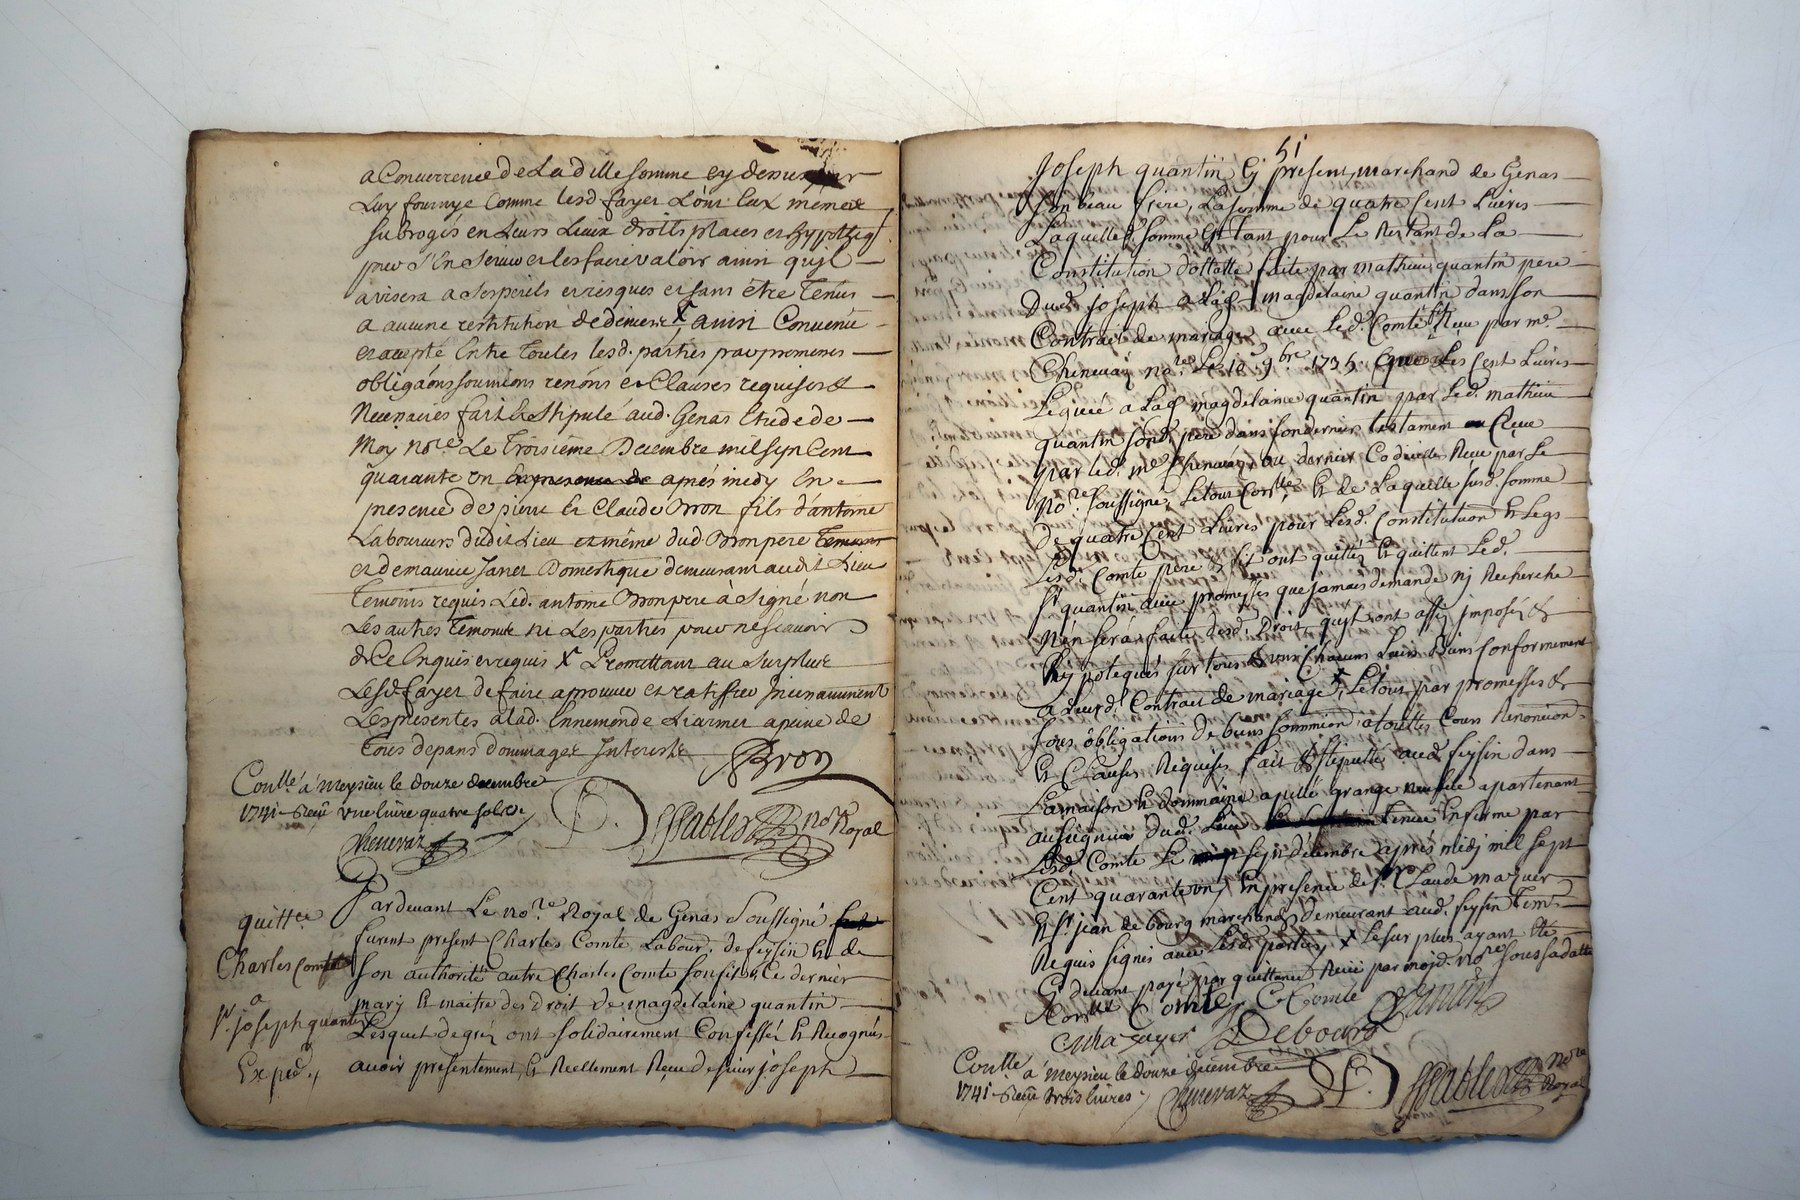 a Concurrence de La ditte somme cy dessus
Luy fournye Comme lesd. fayet L'ont Eux memes
subrogés en Leurs Lieux droits places et hypotteq
pour s'En servir et les faire valoir ainsi qu'jl
avisera a ses perils et risques et sans être Tenus
a aucune restitution de deniers X ainsi Convenu
et accepté Entre Toutes lesd. parties par promesses
obligaons soumions renons et Clauses requises &
Necessaires fait & stipulé aud. Genas Etude de
Moy nore Le Troisieme Decembre mil sept Cent
quarante un apres midy En
presence de pierre & Claude Bron fils d'antoine
Laboureurs dudit Lieu et même dud. Bron pere
et de maurice Janet Domestique demeurant audit Lieu
Temoins requis Led. antoine Bron pere à signé non
Les autres Temoins ni Les parties pour ne scavoir
de Ce Enquis et requis X Promettant au surplus
Lesd. fayet de faire approuver et ratiffier Incessamment
Les presentes a lad. Ennemonde Liarmet a peine de
Tous depans dommages Interests
Bron
Conllé á Meysieu le douze decembre
1741 Reçû une livre quatre sols
Chenevaz
Pablod nore Royal
quittce
Charles Comte
a
sr. joseph quantin
Exped.
Pardevant Le nore. Royal de Genas Soussigné
furent present Charles Comte Labour. de feysin & de
son authorité autre Charles Comte son fils Ce dernier
mary & maitre des Droit de magdelaine quantin
Lesquel de gréz ont solidairement Confessér & Recognus
avoir presentement & Reellement Reçu de sieur joseph
51
Joseph quantin Cy present, marchand de Genas
son beau frere, La somme de quatre Cent Livres
Laquelle somme Estant pour Le Restant de La
Constitution dottalle faite par mathieu quantin pere
Dud. joseph a Lad. magdelaine quantin dans son
Contrait de mariage avec Led. Comte Reçu par me.
Chenevaz nore. Le 10 9bre 1735 que Les Cent Livres
Leguée a Lad. magdelaine quantin par Led. mathieu
quantin sond. pere dans son dernier testament Reçu
par Led. me Chenevaz ou dernier Codicille Reçu par Le
nore. soussigné, Le tout Conllé, & de Laquelle susd. somme
de quatre Cent Livres pour Lesd. Constitution & Legs
Lesd. Comte pere & fils ont quittéz & quittent Led.
sr. quantin avec promesses que jamais demande nj Recherche
n'en sera faite desd. Droit qu'jls ont assis imposés &
hypotequés sur tous & un Chacuns Leurs Biens Conformement
a Leurd. Contrait de mariage X, Le tout par promesses &
sous obligations de biens soummion a touttes Cours Renoncion.
& Clauses Requises fait & stipullé aud. feysin dans
La maison & dommaine apellé grange neufve apartenant
au seigneur dud. Lieu tenue En ferme par
Lesd. Comte Le sept décembre après midj mil sept
Cent quarante un, En presence de sr. Claude mazuer
& sr. jean de bourg marchands demeurant aud. feysin tem.
Requis signés avec Lesd. parties, X Le surplus ayant été
Cy devant payé par quittance Recüe par mojd. nore sous sa datte
Conllé Comte C Comte Quantin
Debourg
Conllé á Meysieu le douze decembre
1741 Reçû trois livres
Chenevaz
Pablod nore Royal